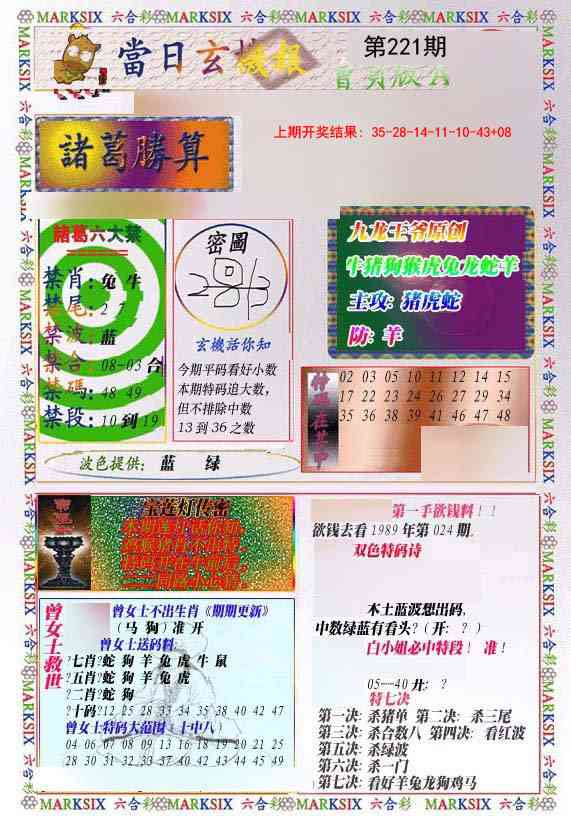 MARKSIX 六合彩 MARKSIX 六合彩 MARKSIX 六合彩 MARKSIX 六合彩
當日玄機報
第221期
上期开奖结果：35-28-14-11-10-43+08
諸葛勝算
諸葛六大禁
禁肖：兔 牛
禁尾：2 7
禁波：蓝
禁合：08-03 合
禁碼：48 49
禁段：10 到 19
密圖
玄機活你知
今期平码看好小数
本期特码追大数，
但不排除中数
13 到 36 之数
九龙王爷原创
牛猪狗猴虎兔龙蛇羊
主攻：猪虎蛇
防：羊
02 03 05 10 11 12 14 15
17 22 23 24 27 29 34
35 36 38 39 41 46 47 48
波色提供： 蓝 绿
宝莲灯传密
第一手欲钱料！！
欲钱去看 1989 年第 024 期。
双色特码诗
木土蓝波想出码，
中数绿蓝有看头？（开：？）
白小姐必中特段！ 准！
05—40 开：？
特七决
第一决：杀猪单 第二决：杀三尾
第三决：杀合数八 第四决：看红波
第五决：杀绿波
第六决：杀一门
第七决：看好羊兔龙狗鸡马
曾女士救世
曾女士不出生肖《期期更新》
（马 狗）准 开
曾女士送码料：
?七肖?蛇 狗 羊 兔 虎 牛 鼠
?五肖?蛇 狗 羊 兔 虎
?二肖?蛇 狗
?十码?12 25 28 33 34 35 38 40 42 47
曾女士特码大范围（十中八）
04 06 07 08 09 13 16 18 19 20 21 25
28 30 31 32 33 37 40 42 43 44 45 49
MARKSIX 六合彩 MARKSIX 六合彩 MARKSIX 六合彩 MARKSIX 六合彩